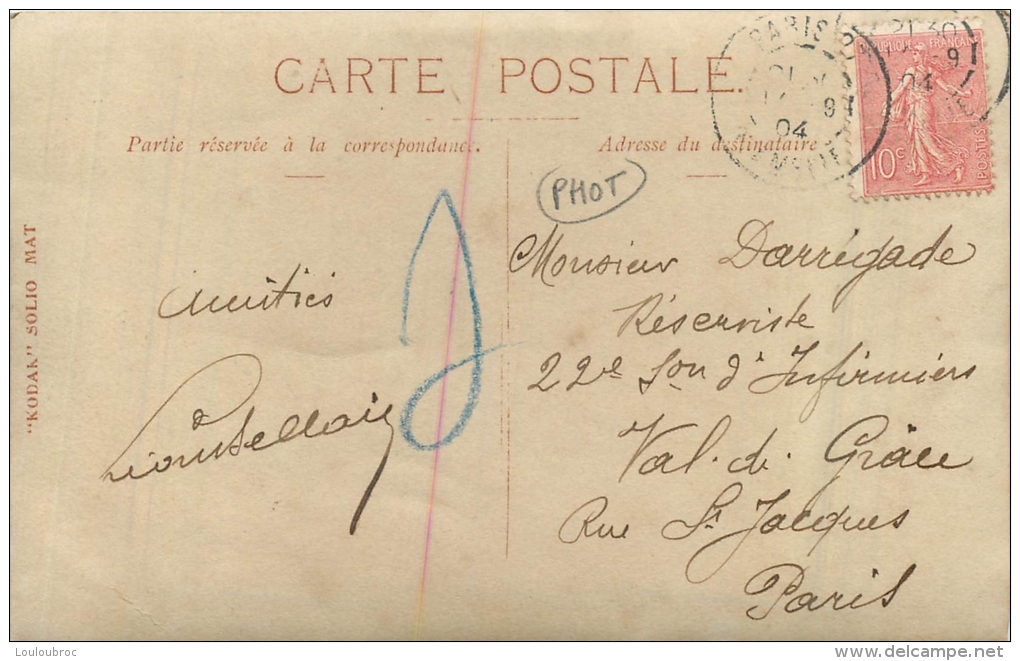 CARTE POSTALE.
Partie réservée à la correspondance.
Adresse du destinataire
"KODAK" SOLIO MAT
PHOT
PARIS
21 30
9
04
RÉPUBLIQUE FRANÇAISE
POSTES
10c
Amitiés
Monsieur Darrégade
Réserviste
22e Son d'Infirmiers
Val. de. Grâce
Rue St Jacques
Paris
Louloubroc
Delcampe.net